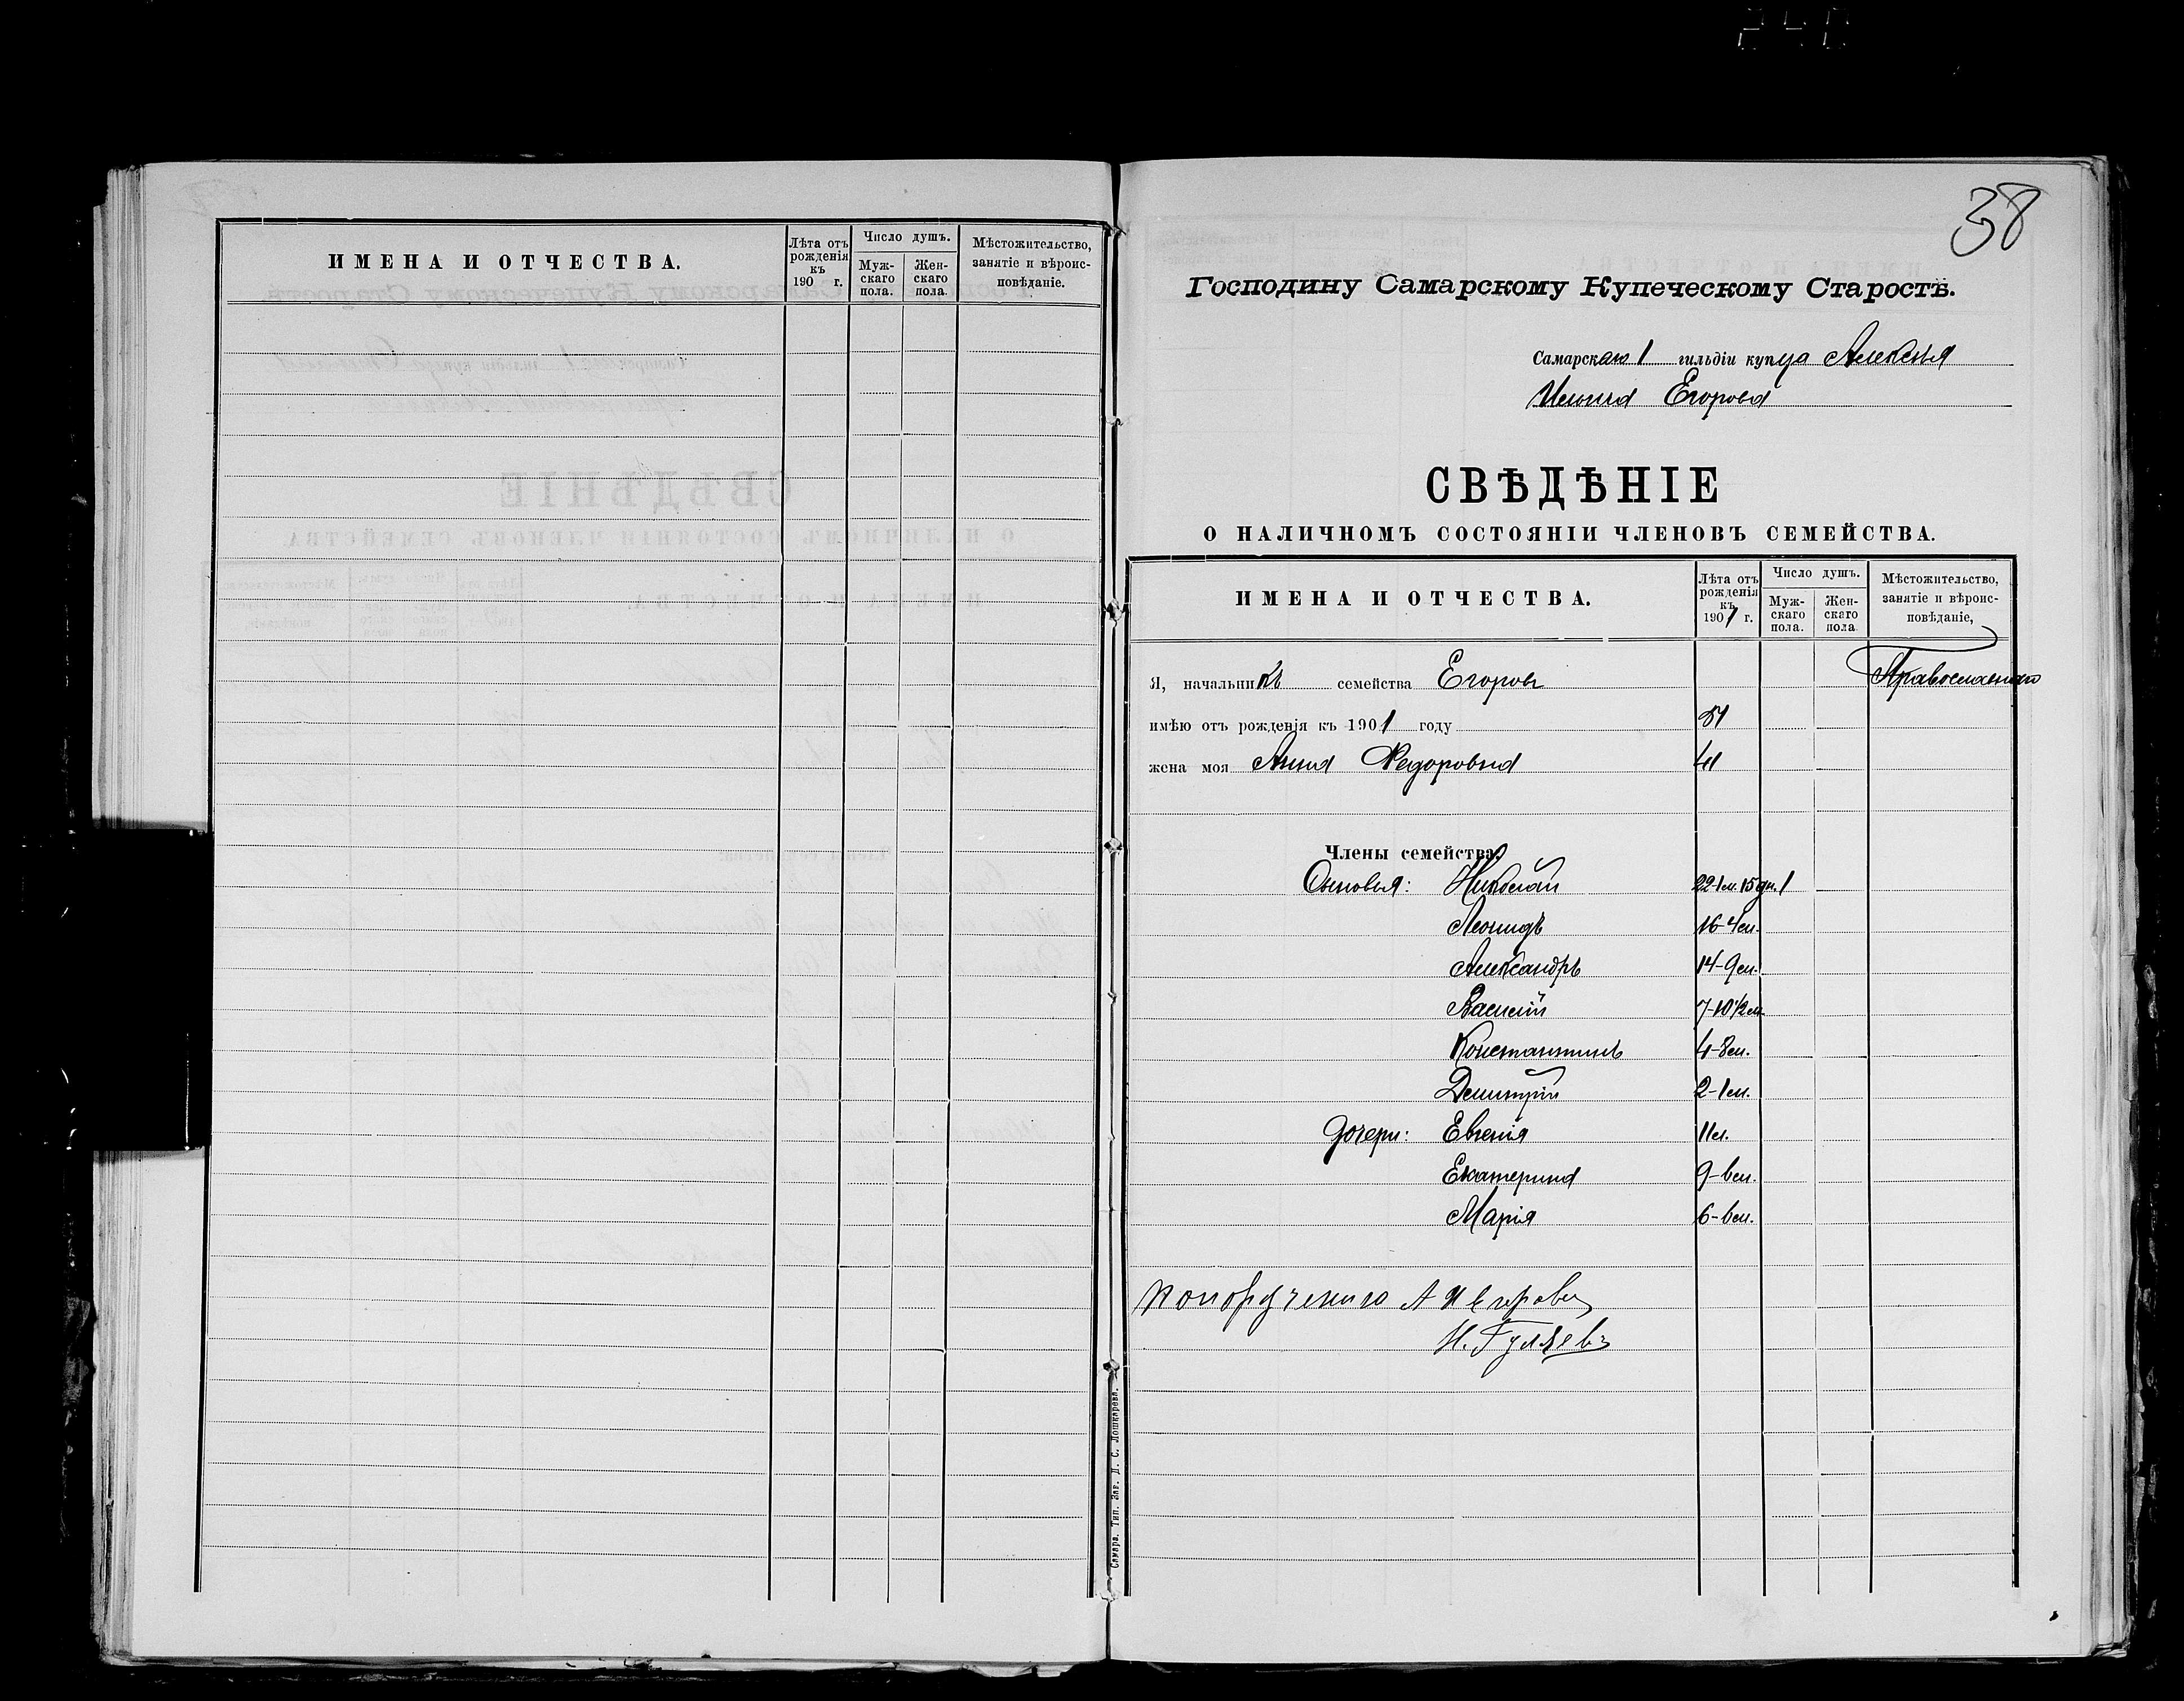 ИМЕНА И ОТЧЕСТВА.
Лѣта отъ рожденія къ 190 г.
Число душъ.
Мужскаго пола.
Женскаго пола.
Мѣстожительство, занятіе и вѣроисповѣданіе.
38
Господину Самарскому Купеческому Старостѣ.
Самарскаго 1 гильдіи купца Алексѣя
Егорова
СВѢДѢНІЕ
О НАЛИЧНОМЪ СОСТОЯНІИ ЧЛЕНОВЪ СЕМЕЙСТВА.
ИМЕНА И ОТЧЕСТВА.
Лѣта отъ рожденія къ 1901 г.
Число душъ.
Мужскаго пола.
Женскаго пола
Мѣстожительство, занятіе и вѣроисповѣданіе,
Я, начальникъ семейства Егоровъ Православнаго
имѣю отъ рожденія къ 1901 году 51
жена моя Анна Федоровна 41
Члены семейства.
Сыновья: Николай 22-1м. 15дн. 1
Леонидъ 16-4м.
Александръ 14-9м.
Василій 7-10 1/2м.
Константинъ 4-8м.
Дмитрій 2-1м.
Дочери: Евгенія
Екатерина
Марія
По порученію А И Егорова
Н. Гуляевъ
Самара. Тип. Зав. Д. С. Лошкарева.